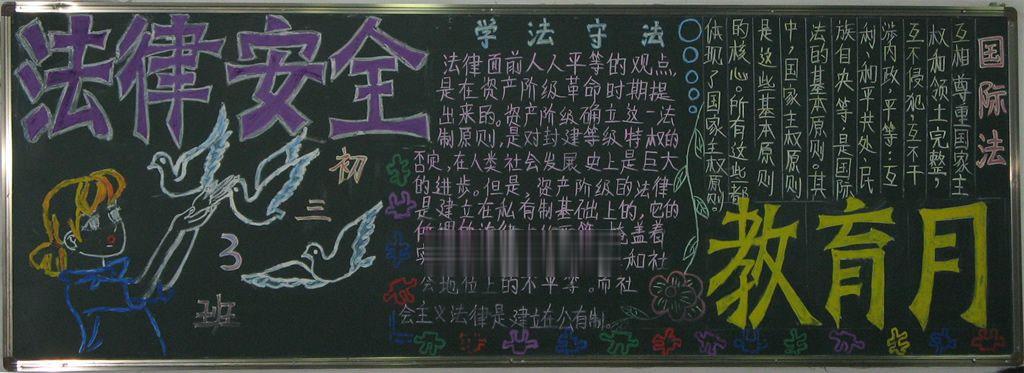 法律安全
初
三
3
班
学法守法
法律面前人人平等的观点,
是在资产阶级革命时期提
出来的。资产阶级确立这一法
制原则,是对封建等级特权的
否定,在人类社会发展史上是巨大
的进步。但是,资产阶级的法律
是建立在私有制基础上的,它的
掩盖着
和社
会地位上的不平等。而社
会主义法律是建立在公有制。
国际法
互相尊重国家主
权和领土完整,
互不侵犯,互不干
涉内政,平等互
利,和平共处、民
族自决等,是国际
法的基本原则。其
中,国家主权原则
是这些基本原则
的核心。所有这些都
体现了国家主权原则
教育月